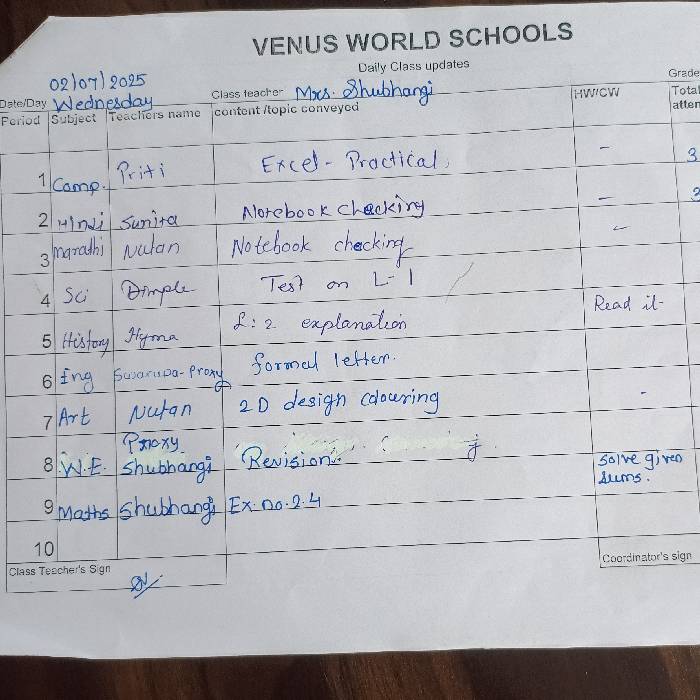 VENUS WORLD SCHOOLS
Daily Class updates
02/07/2025
Date/Day Wednesday Class teacher Mrs. Shubhangi Grade
Period Subject Teachers name content /topic conveyed HW/CW Total
atten
1 Comp. Priti Excel - Practical. - 3
2 Hindi Sunita Notebook checking -
3 marathi Nutan Notebook checking -
4 Sci Dimple Test on L-1
5 History Hyma L: 2 explanation Read it
6 Eng Swarupa-Proxy formed letter.
7 Art Nutan 2D design colouring -
Proxy
8 W.E. Shubhangi Revision. Solve given
sums.
9 Maths Shubhangi Ex. no. 2.4
10
Class Teacher's Sign Coordinator's sign